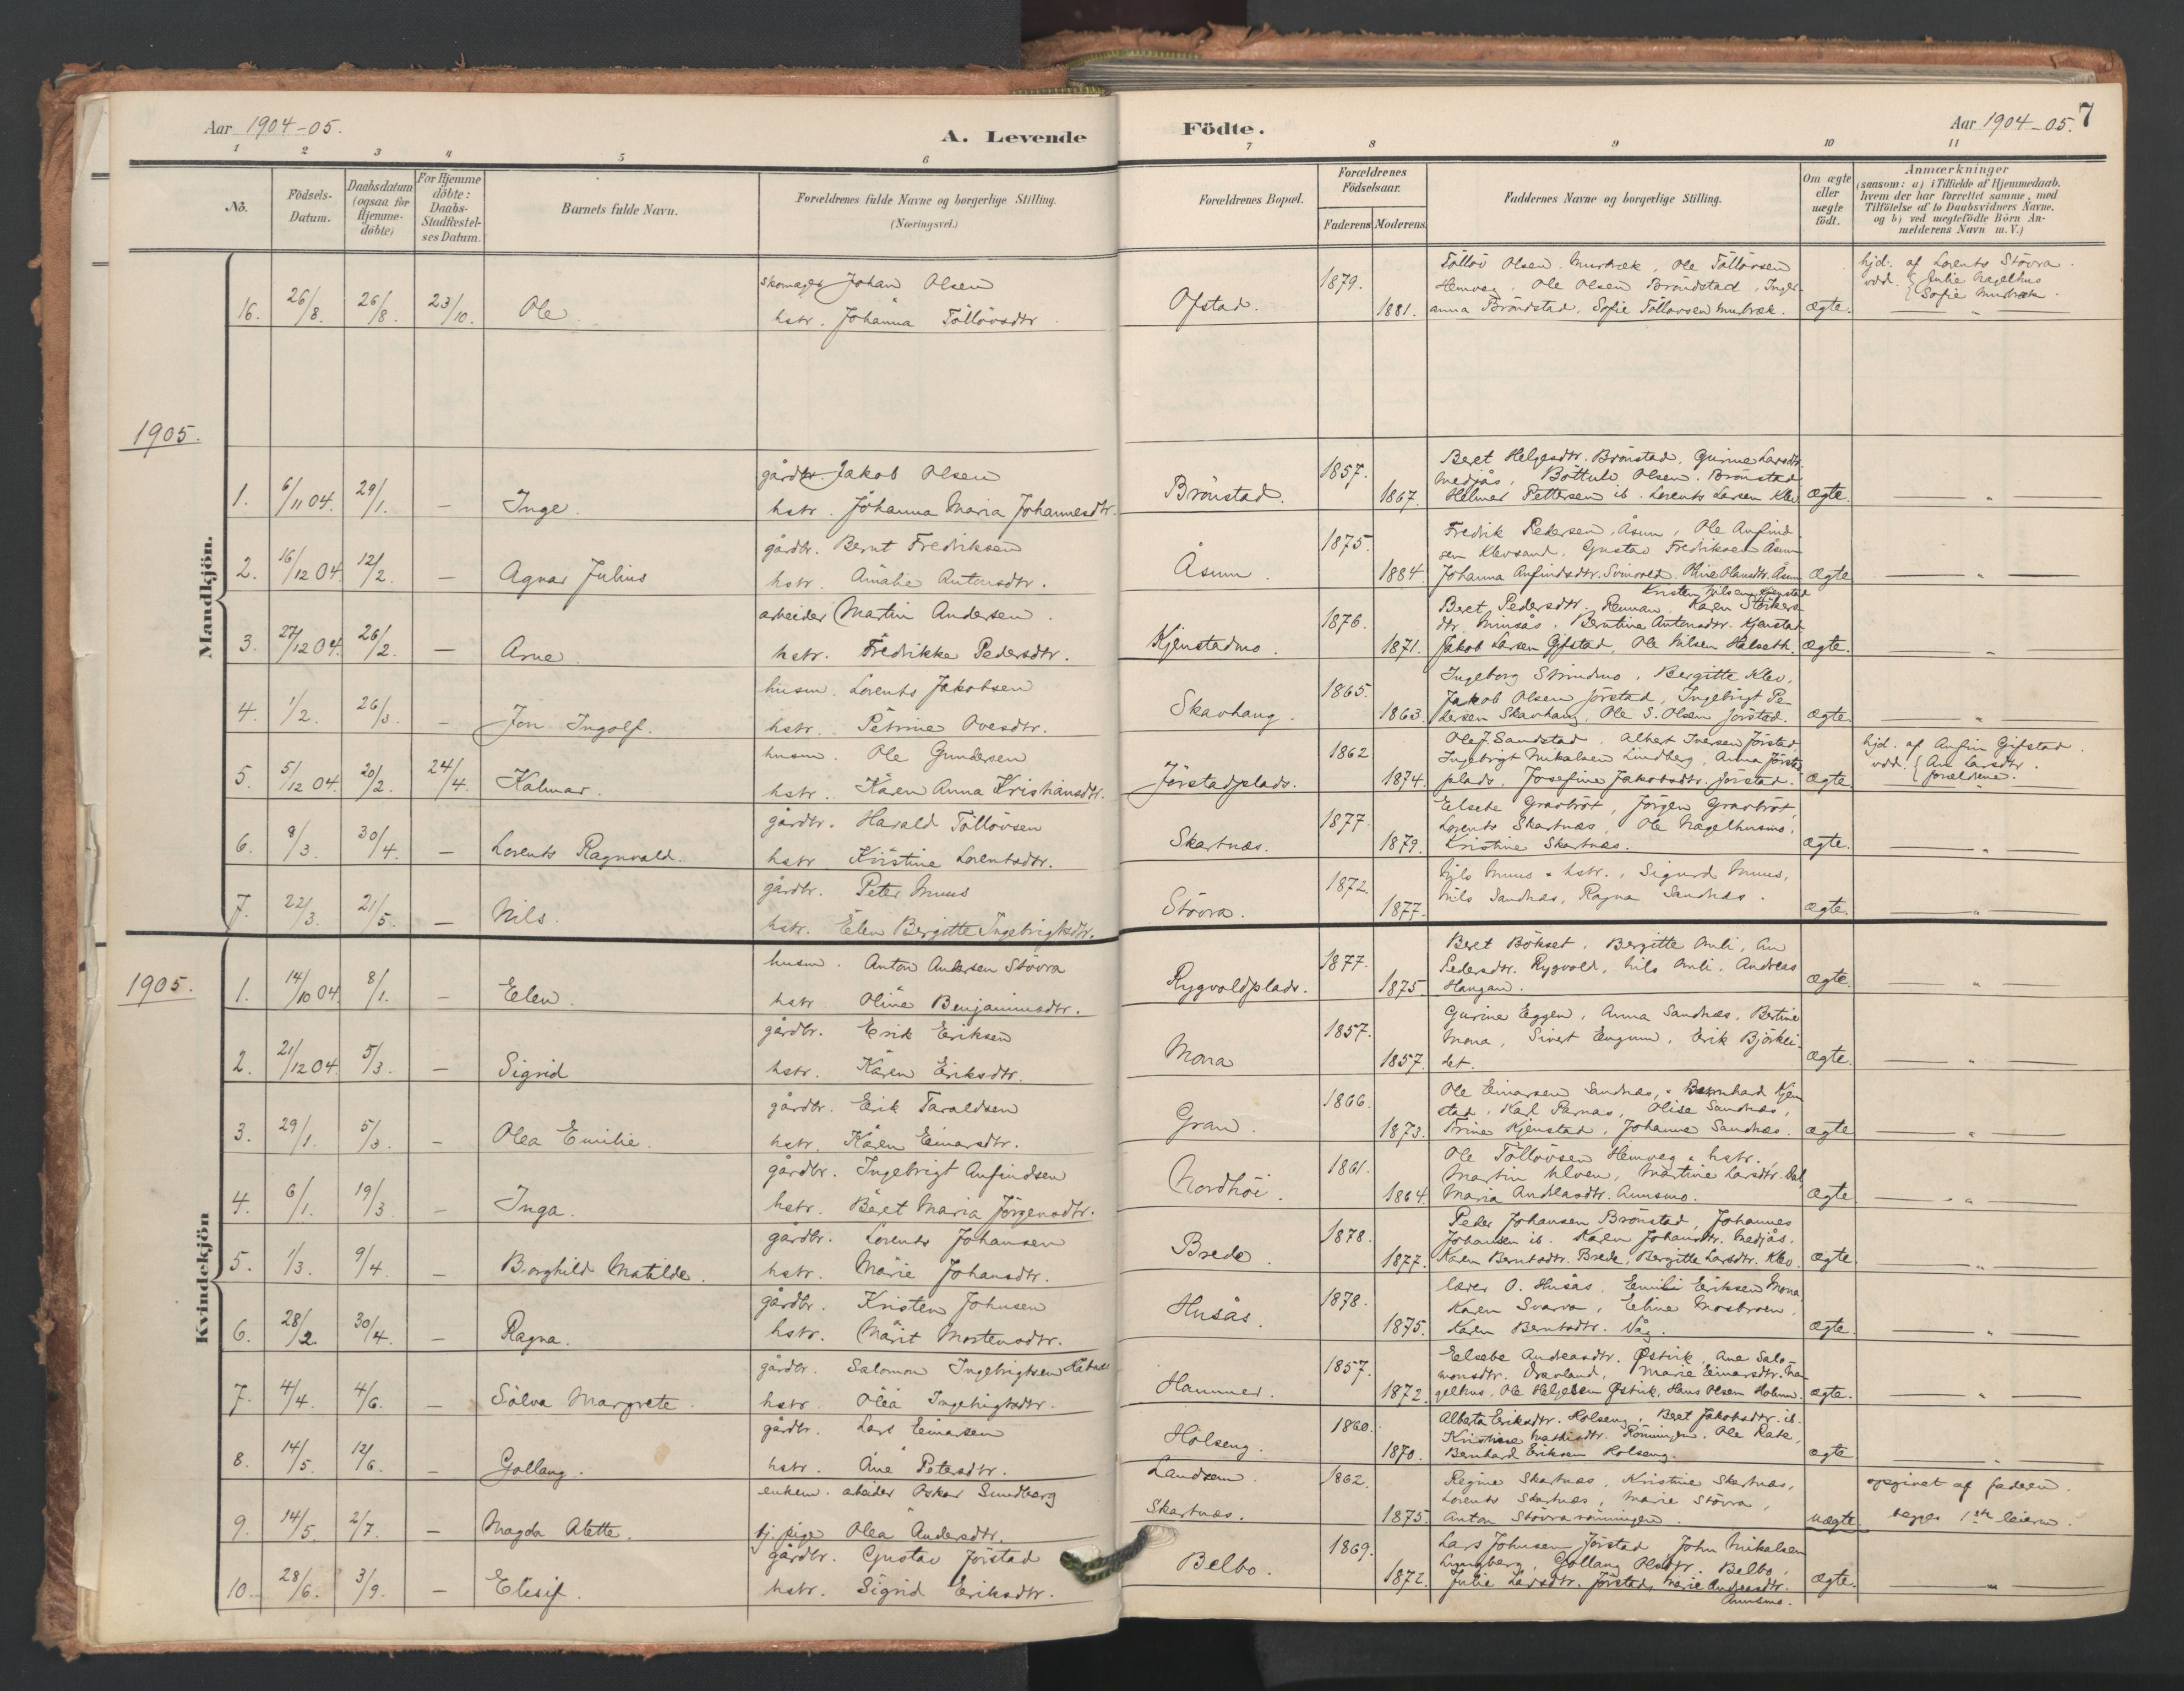 Aar 1904-05.
A. Levende
Födte.
Aar 1904-05. 7
1 2 3 4 5 6 7 8 9 10 11
No.
Födsels-Datum.
Daabsdatum (ogsaa for Hjemmedöbte)
For Hjemmedöbte: Daabs-Stadfæstelses Datum.
Barnets fulde Navn.
Forældrenes fulde Navne og borgerlige Stilling.
(Næringsvei.)
Forældrenes Bopæl.
Forældrenes Födselsaar.
Faderens Moderens
Faddernes Navne og borgerlige Stilling.
Om ægte eller uægte födt.
Anmærkninger
(saasom: a) i Tilfælde af Hjemmedaab.
hvem der har forrettet samme, med
Tilföielse af to Daabsvidners Navne.
og b) ved uægtefödte Börn An-
melderens Navn m. V.)
Mandkjön.
16. 26/8. 26/8. 23/10. Ole.
skomager Johan Olsen
hstr. Johanna Töllövsdtr
Ofstad. 1879. 1881.
Töllöv Olsen Murbræk, Ole Töllövsen
Hemveg, Ole Olsen Bröndstad, Inger-
anna Bröndstad, Sofie Töllövsen Murbræk.
ægte.
hjd. af Lorents Stövra.
vdd. Julie Nagelhus
Sofie Murbræk.
1905.
1. 6/11 04. 29/1. — Inge.
gårdbr. Jakob Olsen
hstr. Johanna Maria Johannesdtr.
Brönstad. 1857. 1867.
Beret Helgesdtr. Brönstad, Gurine Larsdtr.
Medjås, Böttulv Olsen Brönstad
Helmer Pettersen ib. Lorents Larsen Klev
ægte.
2. 16/12 04. 12/2. — Agnar Julius
gårdbr. Bernt Fredriksen
hstr. Amalie Antonsdtr.
Åsum. 1875. 1884.
Fredrik Pedersen Åsum, Ole Anfind-
sen Klevsand, Gustav Fredriksen Åsum
Johanna Anfindsdtr. Svinvold. Oline Olausdtr. Åsum
ægte
3. 27/12 04. 26/2. — Arne.
arbeider Martin Andersen.
hstr. Fredrikke Pedersdtr.
Kjenstadmo. 1876. 1871.
Kristen Nilsen Kjenstad
Beret Pedersdtr. Renman, Karen Störkers-
dtr. Minsås, Berntine Antonsdtr. Kjenstad
Jakob Larsen Gifstad, Ole Nilsen Halseth.
ægte.
4. 1/2. 26/3. — Jon Ingolf.
husm. Lorents Jakobsen
hstr. Petrine Ovesdtr.
Skavhaug. 1865. 1863.
Ingeborg Strindmo, Bergitte Klev,
Jakob Olsen Jörstad, Ingebrigt Pe-
dersen Skavhaug, Ole S. Olsen Jörstad.
ægte.
5. 5/12 04. 20/2. 24/4. Kalmar.
husm. Ole Gundersen
hstr. Karen Anna Kristiansdtr.
Jörstadplads. 1862 1874.
Ole J. Sandstad, Albert Iversen Jörstad
Ingebrigt Mikalsen Lindberg, Anna Jörstad
plads, Josefine Jakobsdtr. Jörstad.
ægte.
hjd. af Anfin Gifstad.
vdd. Ane Larsdtr.
forældrene.
6. 8/3. 30/4. — Lorents Ragnvald.
gårdbr. Harald Töllövsen
hstr Kristine Lorentsdtr.
Skartnæs. 1877. 1879.
Elsebe Gravbröt, Jörgen Gravbröt,
Lorents Skartnæs, Ole Nagelhusmo,
Kristine Skartnæs.
ægte.
7. 22/3. 21/5. — Nils.
gårdbr. Peter Muus
hstr. Elen Bergitte Ingebrigtsdtr.
Stövra. 1872. 1877.
Nils Muus & hstr., Sigurd Muus,
Nils Sandnæs, Ragna Sandnæs.
ægte.
Kvindekjön
1905.
1. 14/10 04. 8/1. — Elen.
husm. Anton Andersen Stövra
hstr Oline Benjaminsdtr.
Rygvoldplads. 1877. 1875.
Beret Bökset, Bergitte Amli, An
Pedersdtr. Rygvold, Nils Amli, Andreas
Haugan.
ægte.
2. 21/12 04. 5/3. — Sigrid
gårdbr. Erik Eriksen
hstr. Karen Eriksdtr.
Mona 1857. 1857.
Gurine Eggen, Anna Sandnæs, Bertine
Mona, Sivert Engum, Erik Björklei-
det.
ægte.
3. 29/1. 5/3. — Olea Emilie.
gårdbr. Erik Taraldsen
hstr. Karen Einarsdtr.
Gran. 1866. 1873.
Ole Einarsen Sandnæs, Bernhard Kjen
stad, Karl Parnas, Olise Sandnæs,
Trine Kjenstad, Johanna Sandnæs.
ægte
4. 6/1. 19/3. — Inga.
gårdbr. Ingebrigt Anfindsen
hstr. Beret Maria Jörgensdtr.
Nordhöi. 1861. 1864.
Ole Töllövsen Hemveg & hstr.
Martin Ulven, Martine Larsdtr. Dal
Maria Andreasdtr. Aunsmo.
ægte
5. 1/3. 9/4. — Borghild Matilde.
gårdbr. Lorents Johansen
hstr. Marie Johansdtr.
Brede. 1878. 1877.
Peder Johansen Brönstad, Johannes
Johansen ib. Karen Johansdtr. Medjås.
Karen Berntsdtr. Brede, Bergitte Larsdtr. Klev.
ægte.
6. 28/2. 30/4. — Ragna.
gårdbr. Kristen Johnsen
hstr. Marit Mortensdtr.
Husås. 1878. 1875.
lærer O. Husås, Emilie Eriksen Mona
Karen Svarva, Eline Mosbroen,
Karen Berntsdtr. Våg.
ægte.
7. 4/4. 4/6. — Sölva Margrete.
gårdbr. Salomon Ingebrigtsen
hstr. Olea Ingebrigtsdtr.
Hammer. 1857. 1872.
Elsebe Andreasdtr. Östvik, Ane Salo-
monsdtr. Överland, Marie Einarsdtr. Na-
gelhus, Ole Helgesen Östvik, Hans Olsen Holum.
ægte.
8. 14/5. 12/6. — Gollaug.
gårdbr. Lars Einarsen
hstr. Ane Petersdtr.
Holseng. 1860. 1870.
Alberta Eriksdtr. Holseng, Beret Jakobsdtr. ib.
Kristine Mathisdtr. Rönningen, Ole Rate,
Bernhard Eriksen Holseng.
ægte
9. 14/5. 2/7. — Magda Alette.
enkem. arbeider Oskar Sundberg
tj. pige Olea Andersdtr.
Landsem.
Skartnæs. 1862. 1875.
Regine Skartnæs, Kristine Skartnæs,
Lorents Skartnæs, Marie Stövra,
Anton Stövrarönningen.
uægte.
opgivet af faderen.
begges 1ste leierm.
10. 28/6. 3/9. — Elisif.
gårdbr. Gustav Jörstad
hstr. Sigrid Eriksdtr.
Belbo. 1869. 1872.
Lars Johnsen Jörstad, John Mikalsen
Lyngberg, Gollaug Olsdtr. Belbo,
Julie Larsdtr. Jörstad, Marie Andreasdtr.
Aunsmo.
ægte.